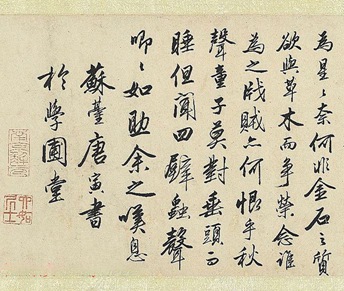 為星〻奈何非金石之質
欲與草木而爭榮念誰
為之戕賊亦何恨乎秋
聲童子莫對垂頭而
睡但聞四壁蟲聲
唧〻如助余之嘆息
蘇臺唐寅書
於學圃堂
六如居士